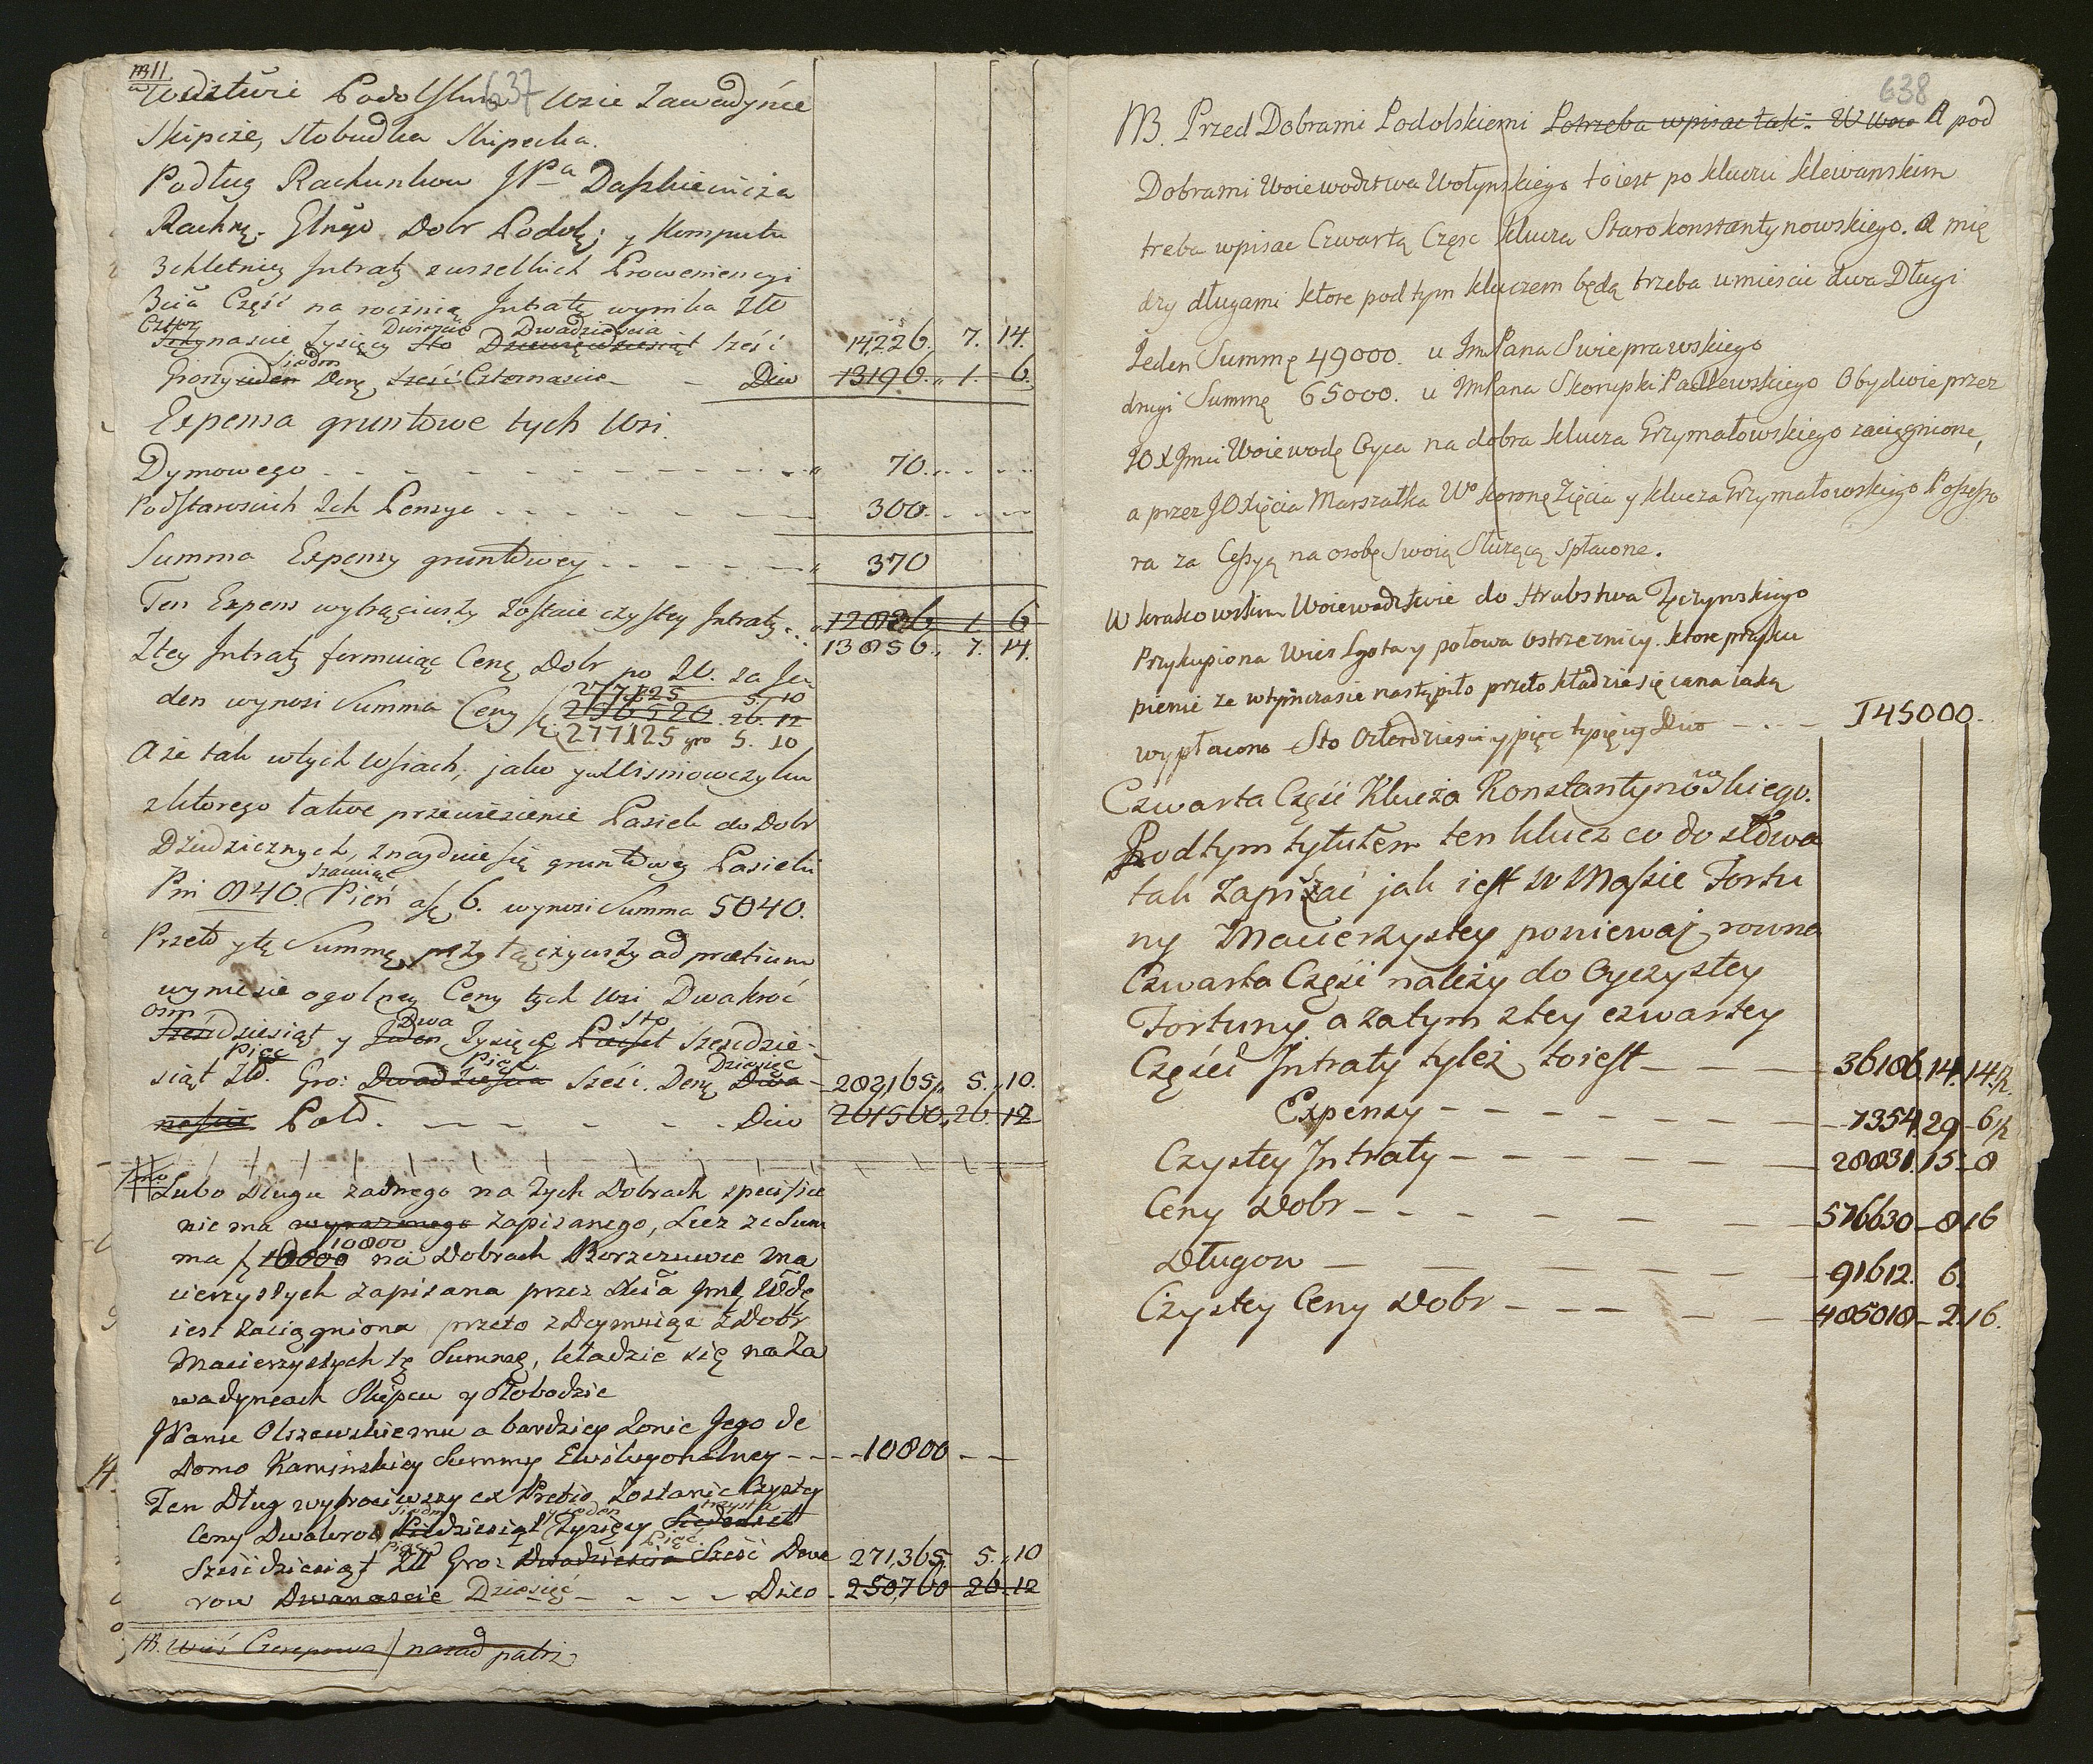 NB II. 637
w Wodztwie Podolskim Wsie Zawadyńce
Skipcze, Słobudka Skipecka.
Podług Rachunkow JPa Daszkiewicza
Rachne. Glngo Dobr Podols: y Komputu
3chletniey Intraty zwszelkich Prowenencyi
3cia Część na roczną Intratę wynika Złł
Czter Dwieście Dwadzieścia
Trzynascie Tysięcy Sto Dziewięcdziesiąt sześć 14,226. 7. 14.
Siedm
Groszy ieden Denr. szesć Czternascie - - Dico 13196. 1. 6.
Expensa gruntowe tych Wsi.
Dymowego - - - 70. - -
Podstarosich 2ch Pensya - - - 300. - -
Summa Expensy gruntowey - - - 370
Ten Expens wytrąciwszy zostaie czystey Intraty - 12826 1 6
13856. 7. 14.
Ztey Intraty formuiąc Cenę Dobr po Zł. za Je
277,125 5. 10
den wynosi Summa Ceny 256520. 26. 12
277125 gro 5. 10
A że tak wtych Wsiach, jako y w Misniowczyku
zktorego łatwe przewiezienie Pasiek do Dobr
Dziedzicznych, znayduie się gruntowey Pasieki
szacuiąc
Pni 840. Pień a 6. wynosi Summa 5040.
Przeto y tę Summę przyłączywszy ad pretium
wyniesie ogolney Ceny tych Wsi Dwakroć
osm Dwa Sto
szescdziesiąt y Jeden Tysięcy Pięcset szescdzie-
Pięc Pięc Dziesięć
siąt Złł. Gro: Dwadzieścia szesć. Denr Dwa - 282,165. 5. 10.
nascie Pold. - - - - Dico 261560. 26. 12
Lubo Długu żadnego na tych Dobrach specifice
nie ma wyrazonego zapisanego, Lecz ze Sum
10800
ma 10000 na Dobrach Borzeczowce Ma
cierzystych zapisana przez Xcia Jmć Wdę
iest zaciągniona przeto zdeymuiąc z Dobr
Macierzystych tę Summę, kładzie się na Za
wadyncach Skipcu y Słobodzie
JPanu Olszewskiemu a bardziey Żonie Jego de
14. Domo Kaminskiey Summy Ewikcyonalney - - - 10800 - -
Ten Dług wytrąciwszy ex Pretio Zostanie Czystey
Siedm y ieden trzysta
Ceny Dwakroć Piedziesiąt Tysięcy Siedmset
Pięc Pięć
Szescdziesiąt Złł Gro: Dwadziescia Szesc Dena 271,365. 5. 10
row Dwanascie Dziesięć - - - - Dico - 250,760 26. 12
NB. Wieś Czerepowa / nazad patrz
638
NB. Przed Dobrami Podolskiemi Potrzeba wpisac tak: W Woie A pod
Dobrami Woiewodztwa Wołynskiego toiest po kluczu Klewanskim
treba wpisac Czwartą Częsc klucza Starokonstantynowskiego. A mię
dzy długami ktore pod tym kluczem będą trzeba umiescic dwa Długi
Jeden Summę 49000. u ImPana Swieprawskiego
drugi Summę 65000. u ImPana Skorupki Padlewskiego Obydwie przez
JOXJmci Woiewodę Oyca na dobra klucza Grzymałowskiego zaciągnione,
a przez JOXięcia Marszałka Wo koronę Zięcia y klucza Grzymałowskiego Possesso
ra za Cessyą na osobę Swoią Służącą spłacone.
W krakowskim Woiewodztwie do Hrabstwa Tęczynskiego
Przykupiona Wies Lgota y połowa Ostrzeznicy. ktore przyku
pienie ze wtymczasie nastąpiło przeto kładzie się cena iaką
wypłacono Sto Czterdziesci y pięc tysięcy Dico - - - 145000.
Czwarta Część Klucza Konstantynowskiego.
Pod tym tytułem ten klucz co do słowa
tak zapisać jak iest w Massie Fortu
ny Macierzystey poniewaz rowna
Czwarta Część należy do Oyczystey
Fortuny a zatym ztey czwartey
Części Intraty tyleż toiest - - - 36186. 14. 14 ½.
Expensy - - - - 7354. 29 - 6 ½
Czystey Intraty - - - - 28831. 15 - 8
Ceny Dobr - - - - 576630 - 8. 16
Długow - - - - 91612. 6.
Czystey Ceny Dobr - - - 485018 - 2. 16.